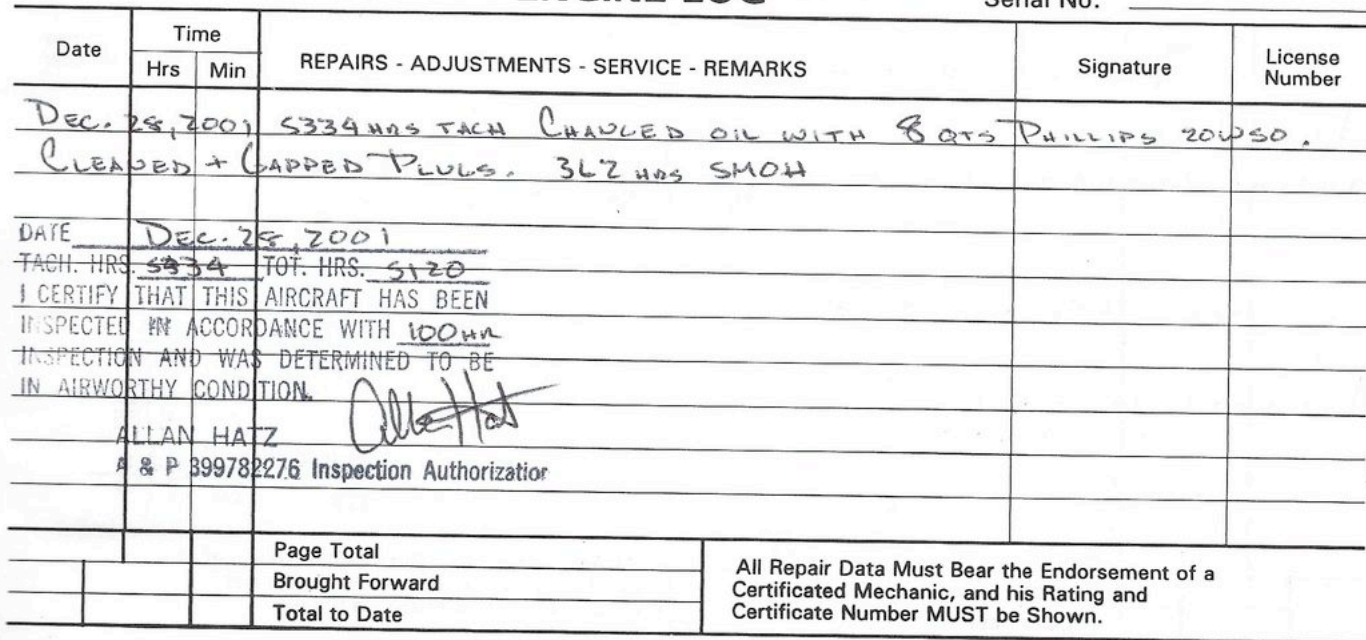 Serial No.
Date
Time
Hrs Min
REPAIRS - ADJUSTMENTS - SERVICE - REMARKS
Signature
License
Number
DEC. 28, 2001 5334 HRS TACH CHANGED OIL WITH 8 QTS PHILLIPS 20W50.
CLEANED + GAPPED PLUGS. 362 HRS SMOH
DATE DEC. 28, 2001
TACH. HRS. 5334 TOT. HRS. 5120
I CERTIFY THAT THIS AIRCRAFT HAS BEEN
INSPECTED IN ACCORDANCE WITH 100 HR
INSPECTION AND WAS DETERMINED TO BE
IN AIRWORTHY CONDITION.
ALLAN HATZ
A & P 399782276 Inspection Authorization
Page Total
Brought Forward
Total to Date
All Repair Data Must Bear the Endorsement of a
Certificated Mechanic, and his Rating and
Certificate Number MUST be Shown.